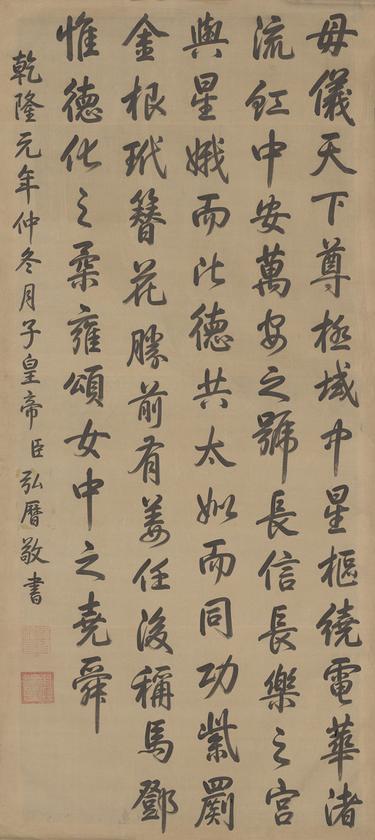 母儀天下尊極域中星樞繞電華渚
流虹中安萬安之號長信長樂之宮
與星娥而比德共太姒而同功紫罽
金根玳簪花勝前有姜任後稱馬鄧
惟德化之柔雍頌女中之堯舜
乾隆元年仲冬月子皇帝臣弘曆敬書